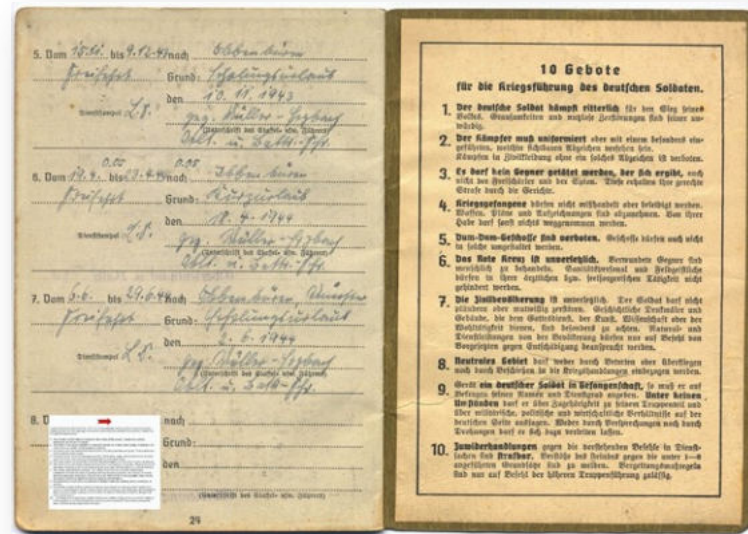 5. Vom bis 9.12. nach Ibbenbüren
Freifahrt Grund: Erholungsurlaub
den 10. 11. 1943
Dienststempel L.S. gez. Müller-
(Unterschrift des Staffel- usw. Führers)
Oblt. u. Battr.-Fhr.
6. Vom 19.4. bis nach Ibbenbüren
Freifahrt Grund: Kurzurlaub
den 18. 4. 1944
Dienststempel L.S. gez. Müller-
(Unterschrift des Staffel- usw. Führers)
Oblt. u. Battr.-Fhr.
7. Vom 6.6. bis 29.6.44 nach Ibbenbüren, Münster
Freifahrt Grund: Erholungsurlaub
den 6. 1944
Dienststempel L.S. gez. Müller-
(Unterschrift des Staffel- usw. Führers)
Oblt. u. Battr.-Fhr.
8. nach
Grund:
den
(Unterschrift des Staffel- usw. Führers)
29
10 Gebote
für die Kriegsführung des deutschen Soldaten.
1. Der deutsche Soldat kämpft ritterlich für den Sieg seines
Volkes. Grausamkeiten und nutzlose Zerstörungen sind seiner un-
würdig.
2. Der Kämpfer muß uniformiert oder mit einem besonders ein-
geführten, weithin sichtbaren Abzeichen versehen sein.
Kämpfen in Zivilkleidung ohne ein solches Abzeichen ist verboten.
3. Es darf kein Gegner getötet werden, der sich ergibt, auch
nicht der Freischärler und der Spion. Diese erhalten ihre gerechte
Strafe durch die Gerichte.
4. Kriegsgefangene dürfen nicht mißhandelt oder beleidigt werden.
Waffen, Pläne und Aufzeichnungen sind abzunehmen. Von ihrer
Habe darf sonst nichts weggenommen werden.
5. Dum-Dum-Geschosse sind verboten. Geschosse dürfen auch nicht
in solche umgestaltet werden.
6. Das Rote Kreuz ist unverletzlich. Verwundete Gegner sind
menschlich zu behandeln. Sanitätspersonal und Feldgeistliche
dürfen in ihrer ärztlichen bzw. seelsorgerischen Tätigkeit nicht
gehindert werden.
7. Die Zivilbevölkerung ist unverletzlich. Der Soldat darf nicht
plündern oder mutwillig zerstören. Geschichtliche Denkmäler und
Gebäude, die dem Gottesdienst, der Kunst, Wissenschaft oder der
Wohltätigkeit dienen, sind besonders zu achten. Natural- und
Dienstleistungen von der Bevölkerung dürfen nur auf Befehl von
Vorgesetzten gegen Entschädigung beansprucht werden.
8. Neutrales Gebiet darf weder durch Betreten oder Überfliegen
noch durch Beschießen in die Kriegshandlungen einbezogen werden.
9. Gerät ein deutscher Soldat in Gefangenschaft, so muß er auf
Befragen seinen Namen und Dienstgrad angeben. Unter keinen
Umständen darf er über Zugehörigkeit zu seinem Truppenteil und
über militärische, politische und wirtschaftliche Verhältnisse auf der
deutschen Seite aussagen. Weder durch Versprechungen noch durch
Drohungen darf er sich dazu verleiten lassen.
10. Zuwiderhandlungen gegen die vorstehenden Befehle in Dienst-
sachen sind strafbar. Verstöße des Feindes gegen die unter 1–8
angeführten Grundsätze sind zu melden. Vergeltungsmaßregeln
sind nur auf Befehl der höheren Truppenführung zulässig.